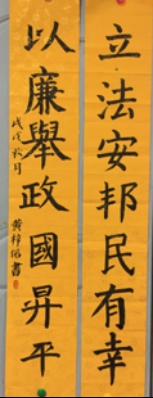 立法安邦民有幸
以廉舉政國昇平
戊戌秋月
黃 書